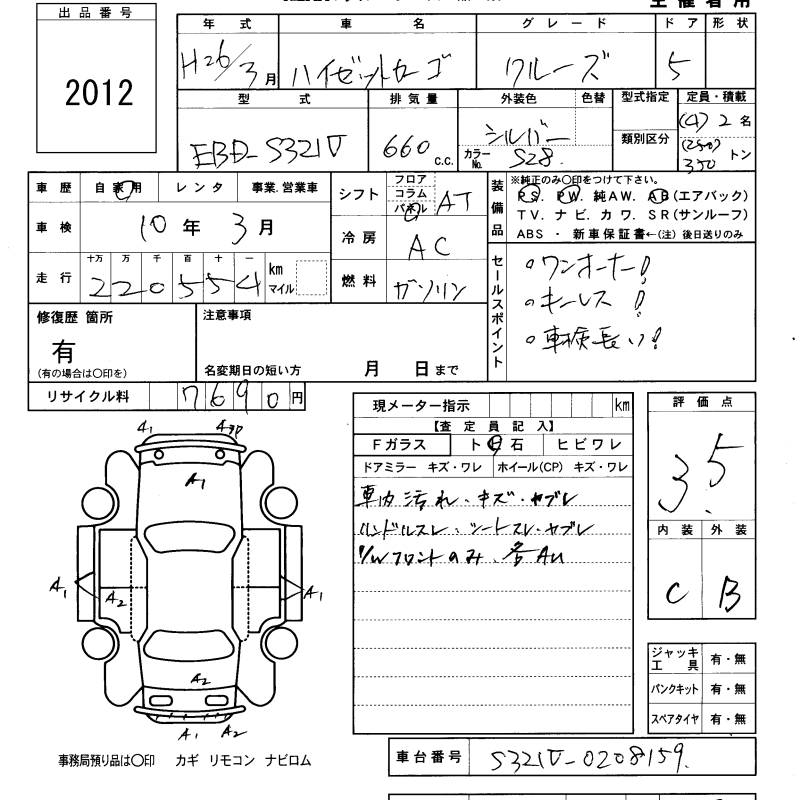 出品番号
2012
年式 車名 グレード ドア 形状
H26/3月 ハイゼットカーゴ クルーズ 5
型式 排気量 外装色 色替 型式指定 定員・積載
EBD-S321V 660 c.c. シルバー カラーNo. S28 類別区分 (4) 2 名 (250) 350 トン
車歴 自家用 レンタ 事業.営業車
車検 10年 3月
走行 十万 万 千 百 十 一 km マイル
220554
シフト フロア コラム パネル AT
冷房 AC
燃料 ガソリン
装備品 ※純正のみ〇印をつけて下さい。
PS. PW. 純AW. AB(エアバック)
TV. ナビ. カワ. SR(サンルーフ)
ABS ・ 新車保証書←(注) 後日送りのみ
セールスポイント
○ワンオーナー!
○キーレス!
○車検長い!
修復歴 箇所
有
(有の場合は〇印を)
注意事項
名変期日の短い方 月 日まで
リサイクル料 7690円
現メーター指示 km
【査定員記入】
Fガラス ト石 ヒビワレ
ドアミラー キズ・ワレ ホイール(CP) キズ・ワレ
車内汚れ・キズ・ヤブレ
ハンドルスレ・シートスレ・ヤブレ
P/Wフロントのみ、各AU
評価点
3.5
内装 外装
C B
A1 A3P
A1
A1 A2 A1
A2
A1 A2
ジャッキ工具 有・無
パンクキット 有・無
スペアタイヤ 有・無
事務局預り品は〇印 カギ リモコン ナビロム
車台番号 S321V-0208159.